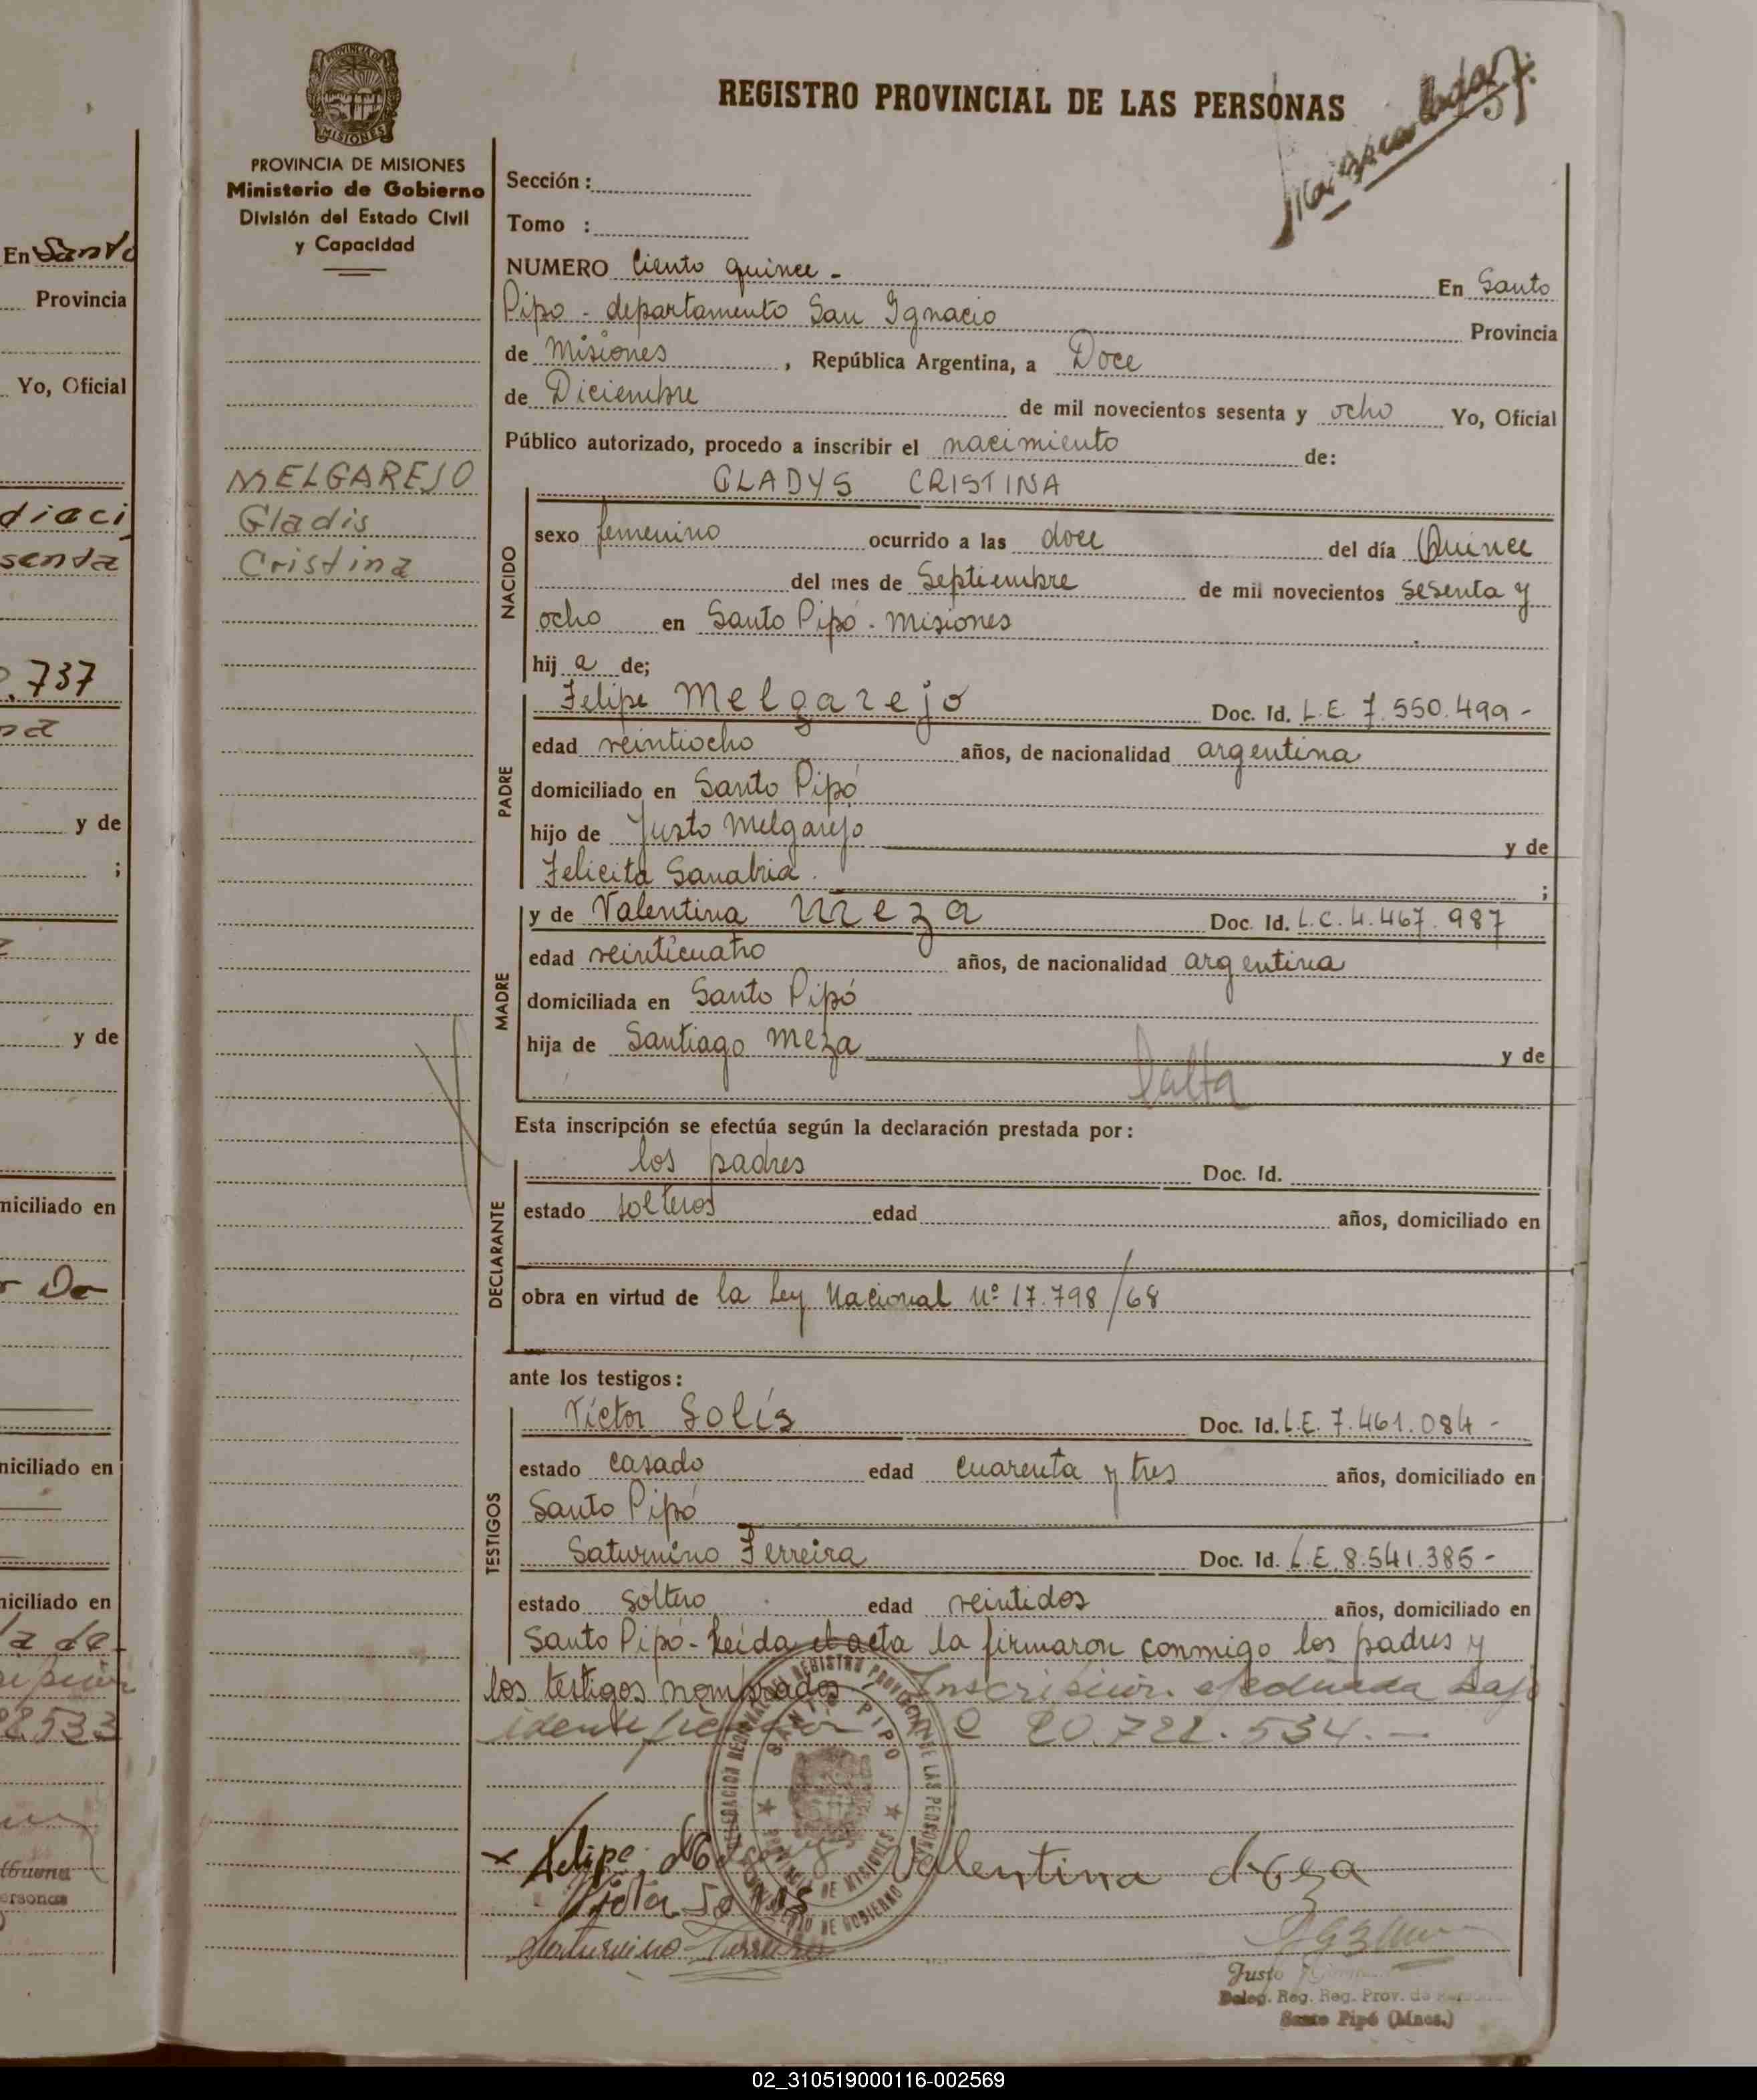 En Santo
Provincia
Yo, Oficial
diaci
senta
.737
y de
;
y de
miciliado en
niciliado en
niciliado en
la de-
8.533
PROVINCIA DE
MISIONES
PROVINCIA DE MISIONES
Ministerio de Gobierno
División del Estado Civil
y Capacidad
MELGAREJO
Gladis
Cristina
REGISTRO PROVINCIAL DE LAS PERSONAS
Sección :
Tomo :
NUMERO Ciento quince - En Santo
Pipo - departamento San Ignacio Provincia
de Misiones , República Argentina, a Doce
de Diciembre de mil novecientos sesenta y ocho Yo, Oficial
Público autorizado, procedo a inscribir el nacimiento de:
GLADYS CRISTINA
NACIDO
sexo femenino ocurrido a las doce del día Quince
del mes de Septiembre de mil novecientos sesenta y
ocho en Santo Pipó - Misiones
hij a de;
PADRE
Felipe Melgarejo Doc. Id. L.E. 7.550.499 -
edad veintiocho años, de nacionalidad argentina
domiciliado en Santo Pipó
hijo de Justo Melgarejo y de
Felicita Sanabria. ;
MADRE
y de Valentina Meza Doc. Id. L.C. 4.467.987
edad veinticuatro años, de nacionalidad argentina
domiciliada en Santo Pipó
hija de Santiago Meza y de
falta
Esta inscripción se efectúa según la declaración prestada por:
DECLARANTE
los padres Doc. Id.
estado solteros edad años, domiciliado en
obra en virtud de la Ley Nacional Nº 17.798/68
ante los testigos:
TESTIGOS
Víctor Solís Doc. Id. L.E. 7.461.084 -
estado casado edad cuarenta y tres años, domiciliado en
Santo Pipó
Saturnino Ferreira Doc. Id. L.E. 8.541.385 -
estado soltero edad veintidos años, domiciliado en
Santo Pipó - Leida el acta la firmaron conmigo los padres y
los testigos nombrados - Inscripcion efectuada bajo
identificador 20.722.534. -
SANTO PIPO
PROVINCIA DE MISIONES
MINISTERIO DE GOBIERNO
Felipe Valentina Meza
Victor Solis
Saturnino Ferreira
Justo
Deleg. Reg. Reg. Prov. de
Santo Pipó (Mnes.)
02_310519000116-002569